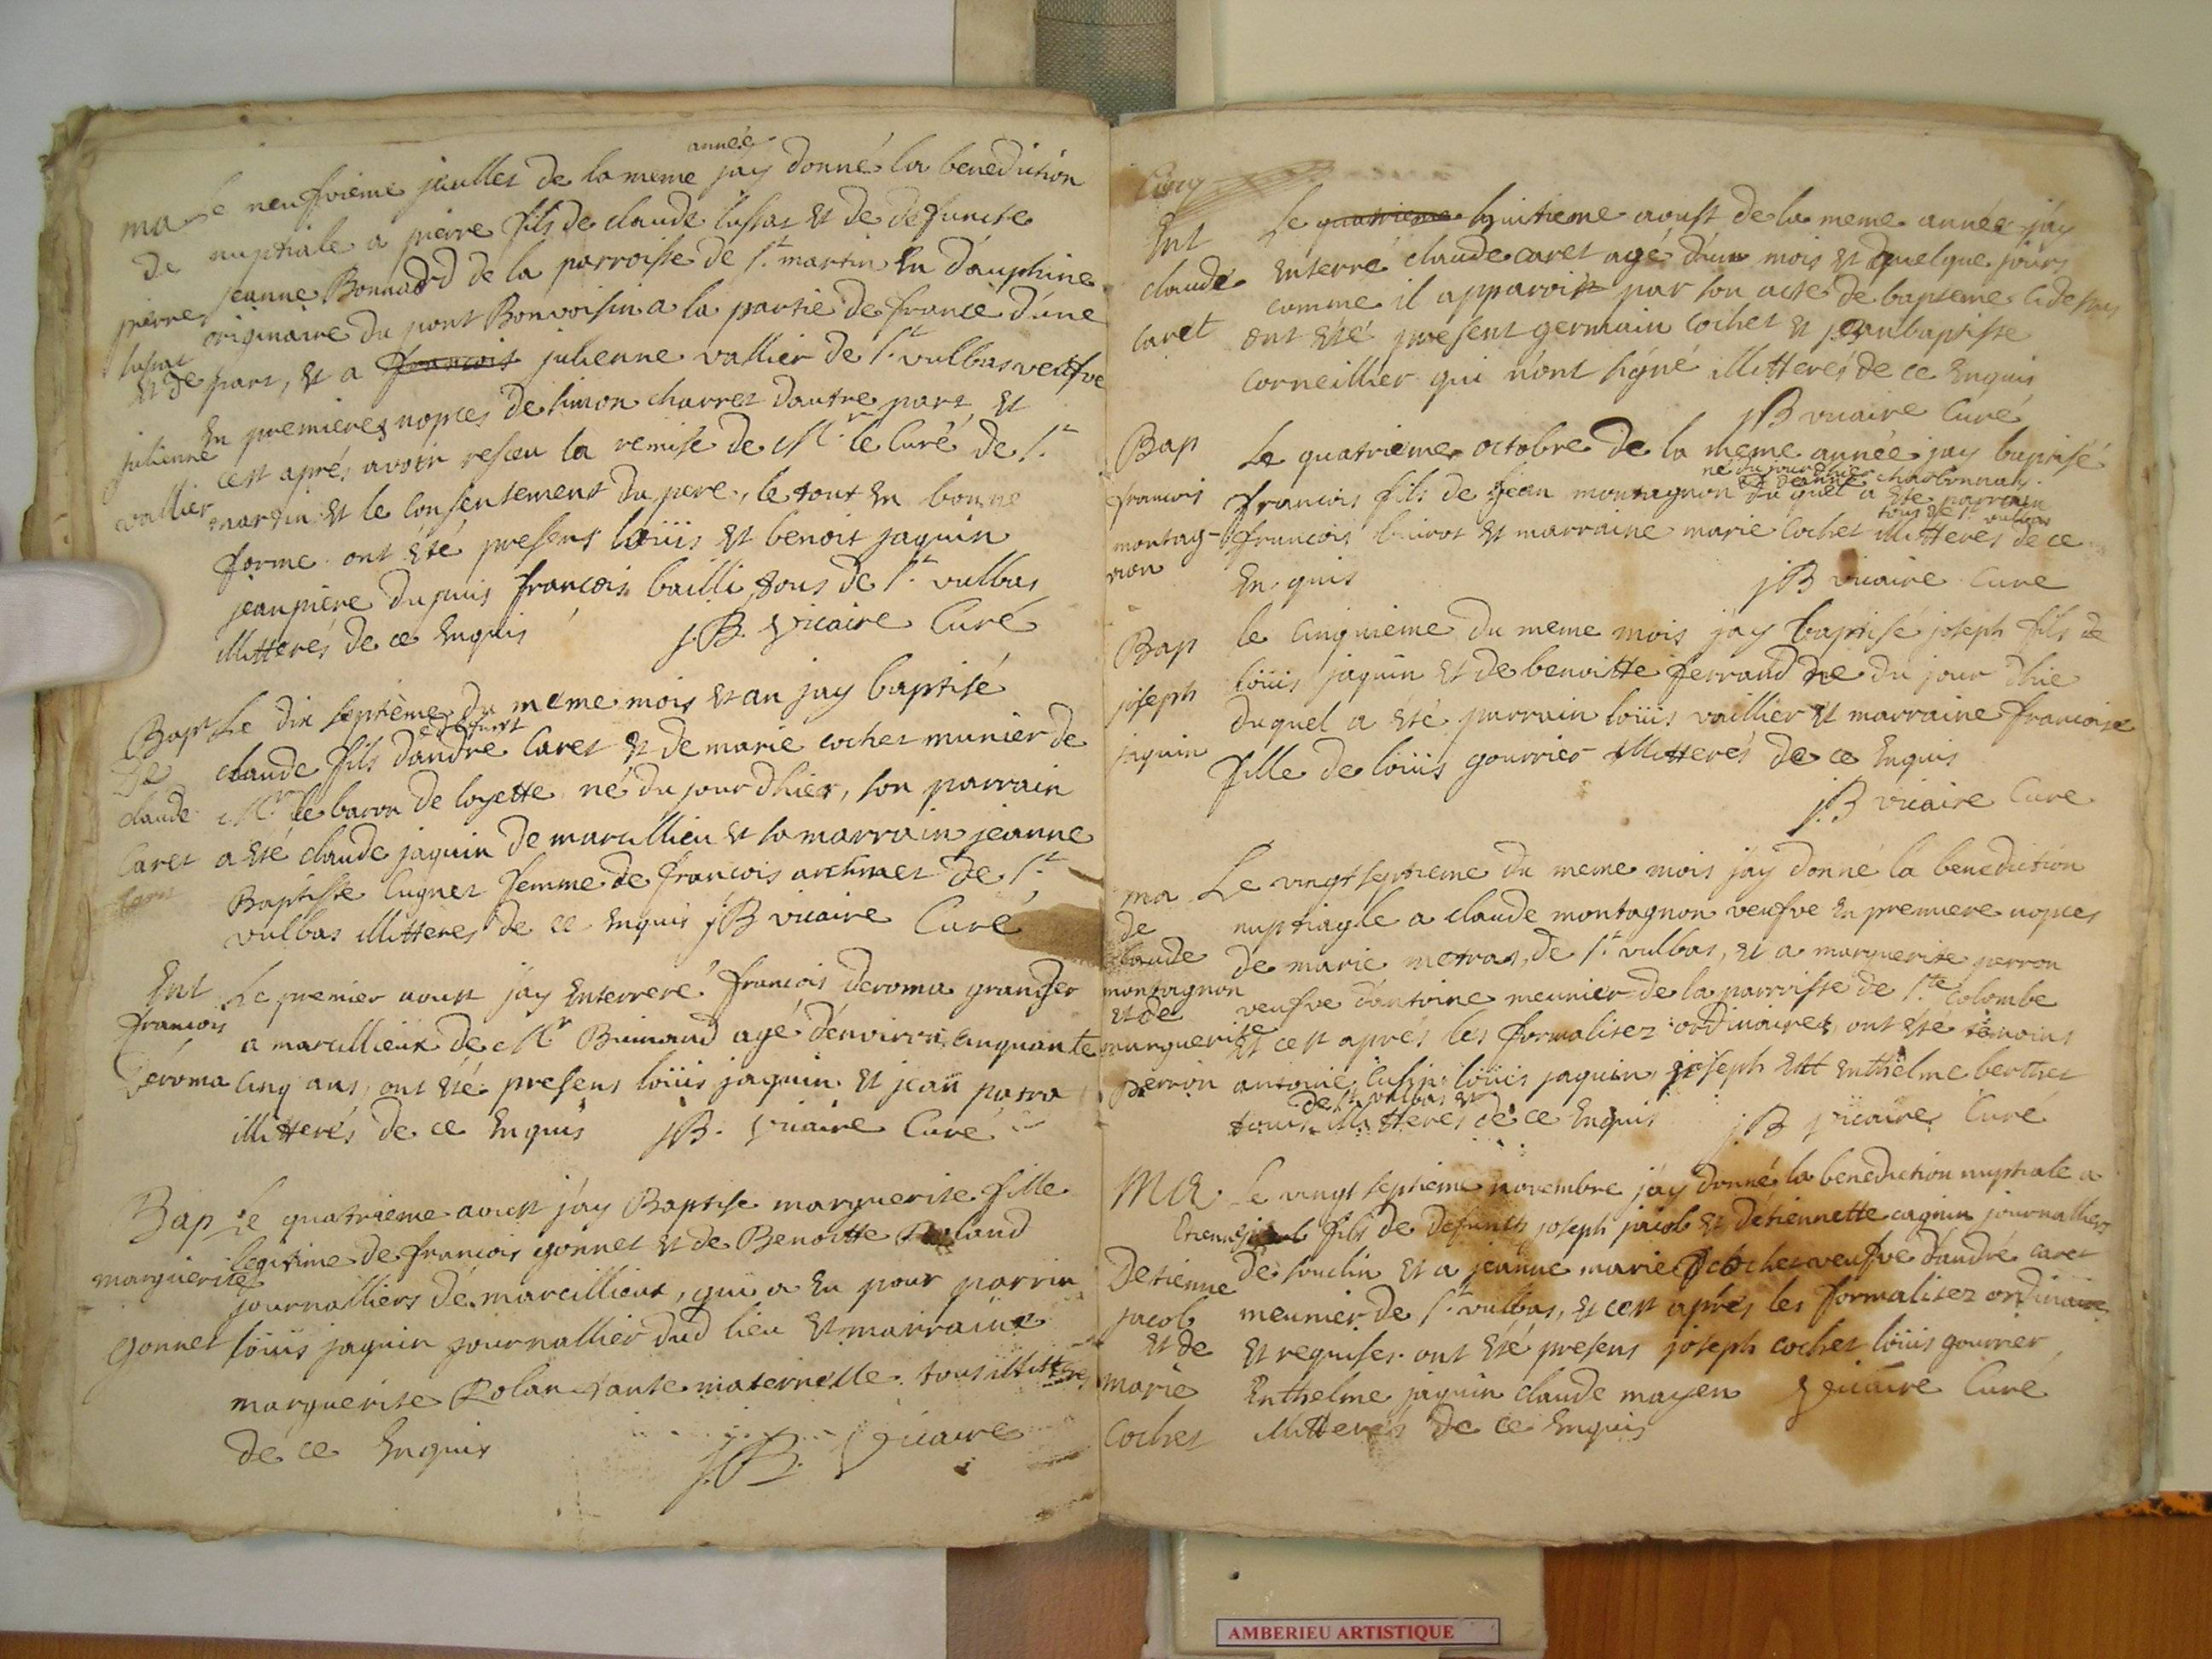 année
ma Le neufvieme juillet de la meme jay donné la benediction
de nuptiale a pierre fils de claude lussat et de defuncte
pierre jeanne Bonnard de la parroisse de st. martin En dauphine
lussat originaire du pont Bonvoisin a la partie de france d'une
et de part, et a francois julienne vallier de st. vulbas veufve
julienne En premieres nopces de simon charret dautre part, et
vallier cest aprés avoir resceu la remise de Mr. le Curé de st.
martin et le consentement du pere, le tout En bonne
forme. ont été present loüis et benoit jaquin
jeanpiere dupuis francois bailli tous de st. vulbas
illitterés de ce Enquis J.B. Vicaire Curé
Bapt Le dix septième du meme mois et an jay baptisé
de claude fils dandre Caret et de marie cochet munier de
claude Mr. le baron de loyette né du jour dhier, son parrain
Caret a été claude jaquin de marcillieu et sa marrain jeanne
Baptiste Cugnet femme de francois archmet de st.
vulbas illitteres de ce Enquis JB vicaire Curé
Ent Le premier aoust jay Enterreré francois deroma granger
francois a marcillieux de Mr Brunaud agé dénviron Cinquante
déroma Cinq ans, ont été presens loüis jaquin et jean patra
illitterés de ce Enquis JB. Vicaire Curé
Bap Le quatrieme aoust jáy Baptise marguerite fille
legitime de francois gonnet et de Benoitte Roland
marguerite journalliers dé marcillieux, qui a Eu pour parrin
gonnet loüis jaquin journallier dud lieu et marraine
marguerite Rolan tante maternelle tous illitterés
de ce Enquis J.B. Vicaire
Ent Le quatrieme huitieme aoust de la meme année jáy
claude Enterré claude caret agé d'un mois et quelque jours
caret comme il apparoist par son acte de bapteme cidessus
ont eté present germain cochet et jeanbaptiste
Corneillier qui n'ont signé illitterés de ce Enquis
JB vicaire Curé
Bap Le quatrieme octobre de la meme année jay baptisé
né du jour dhier
et de jeanne charbonnah
francois francois fils de jean montagnon duquel a été parrain
tous de st. vulbas
montag- francois buirot et marraine marie Cochet illitterés de ce
non Enquis JB vicaire Cure
Bap le Cinquieme du meme mois jáy baptisé joseph fils de
joseph loüis jaquin et de benoitte ferrand ne du jour dhie
jaquin duquel a été parrain loüis vaillier et marraine francoise
fille de loüis gourrier illitterés de ce Enquis
J.B vicaire Cure
ma Le vingt septieme du meme mois jáy donné la benediction
de nuptiagle a claude montagnon veufve En premiere nopces
claude de marie metras, de st. vulbas, et a marguerite perron
montagnon veufve dántoine meunier de la parroisse de ste Colombe
et de
marguerite Et cest aprés les formalitez ordinaires, ont été témoins
perron antoine loüis jaquin joseph Enthelme berthet
de st. vulbas et
tous illitterés de ce Enquis JB Vicaire Curé
Ma Le vingt septieme novembre jáy donné la benediction nuptiale a
Etienne jacob fils de defuncts joseph jacob et détiennette cagnin journalliers
Detienne de souclin et a jeanne marie Cochet veufve dándré caret
jacob meunier de st. vulbas, et cest aprés les formalitez ordinaire
et de Et requises. ont été presens joseph cochet loüis gourrier
marie Enthelme jaquin claude mayen Vicaire Curé
Cochet illitterés de ce Enquis
AMBERIEU ARTISTIQUE